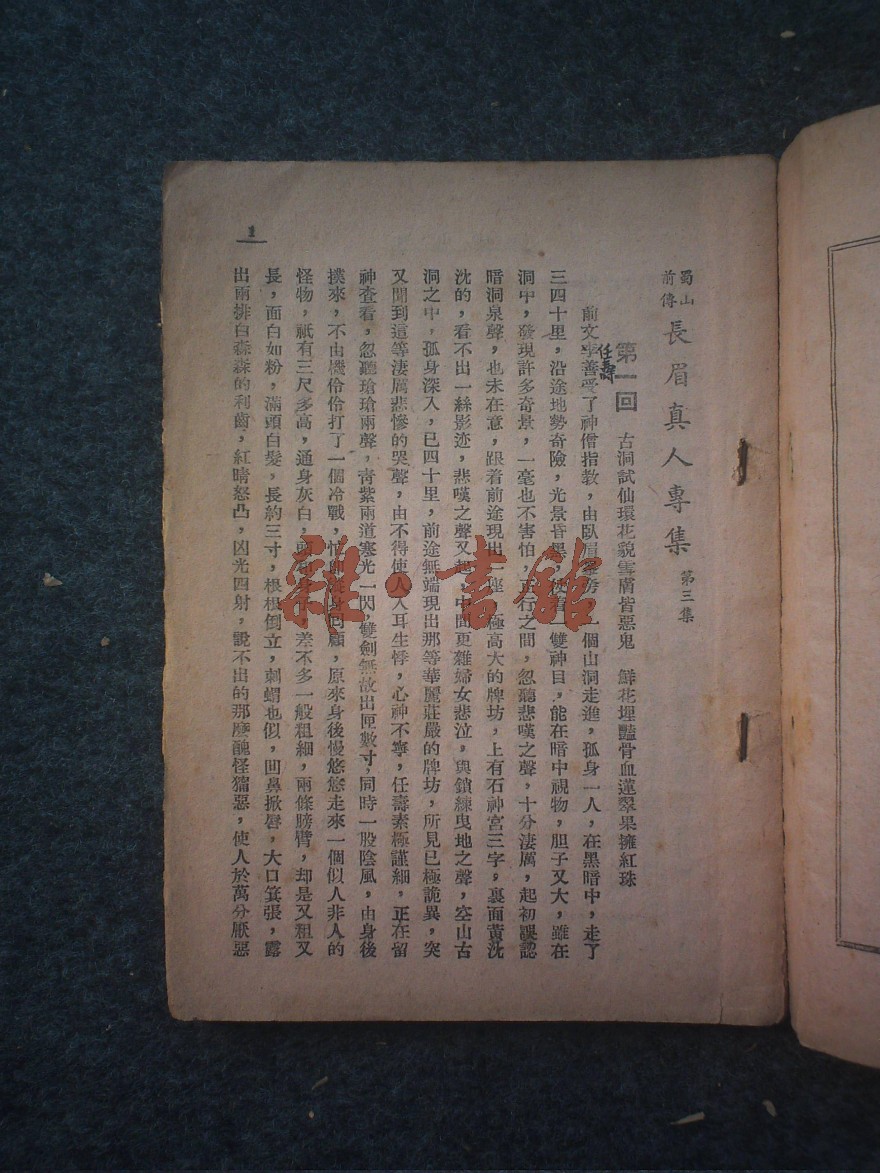 蜀山前傳 長眉真人專集 第三集
第一回 古洞試仙環花貌雪膚皆惡鬼 鮮花埋豔骨血蓮翠果擁紅珠
任壽
前文李善受了神僧指教，由臥眉 一個山洞走進，孤身一人，在黑暗中，走了
三四十里，沿途地勢奇險，光景昏黑， 雙神目，能在暗中視物，胆子又大，雖在
洞中，發現許多奇景，一毫也不害怕，正行之間，忽聽悲嘆之聲，十分淒厲，起初誤認
暗洞泉聲，也未在意，跟着前途現出一座極高大的牌坊，上有石神宮三字，裏面黃沈
沈的，看不出一絲影迹，悲嘆之聲又起，中間更雜婦女悲泣，與鎖鍊曳地之聲，空山古
洞之中，孤身深入，已四十里，前途無端現出那等華麗莊嚴的牌坊，所見已極詭異，突
又聞到這等淒厲悲慘的哭聲，由不得使人入耳生悸，心神不寧，任壽素極謹細，正在留
神查看，忽聽瑲瑲兩聲，青紫兩道寒光一閃，雙劍無故出匣數寸，同時一股陰風，由身後
撲來，不由機伶伶打了一個冷戰， 回顧，原來身後慢悠悠走來一個似人非人的
怪物，祇有三尺多高，通身灰白， 差不多一般粗細，兩條膀臂，却是又粗又
長，面白如粉，滿頭白髮，長約三寸，根根倒立，刺蝟也似，凹鼻掀唇，大口箕張，露
出兩排白森森的利齒，紅睛怒凸，凶光四射，說不出的那麼醜怪獰惡，使人於萬分厭惡
1
雜·書館